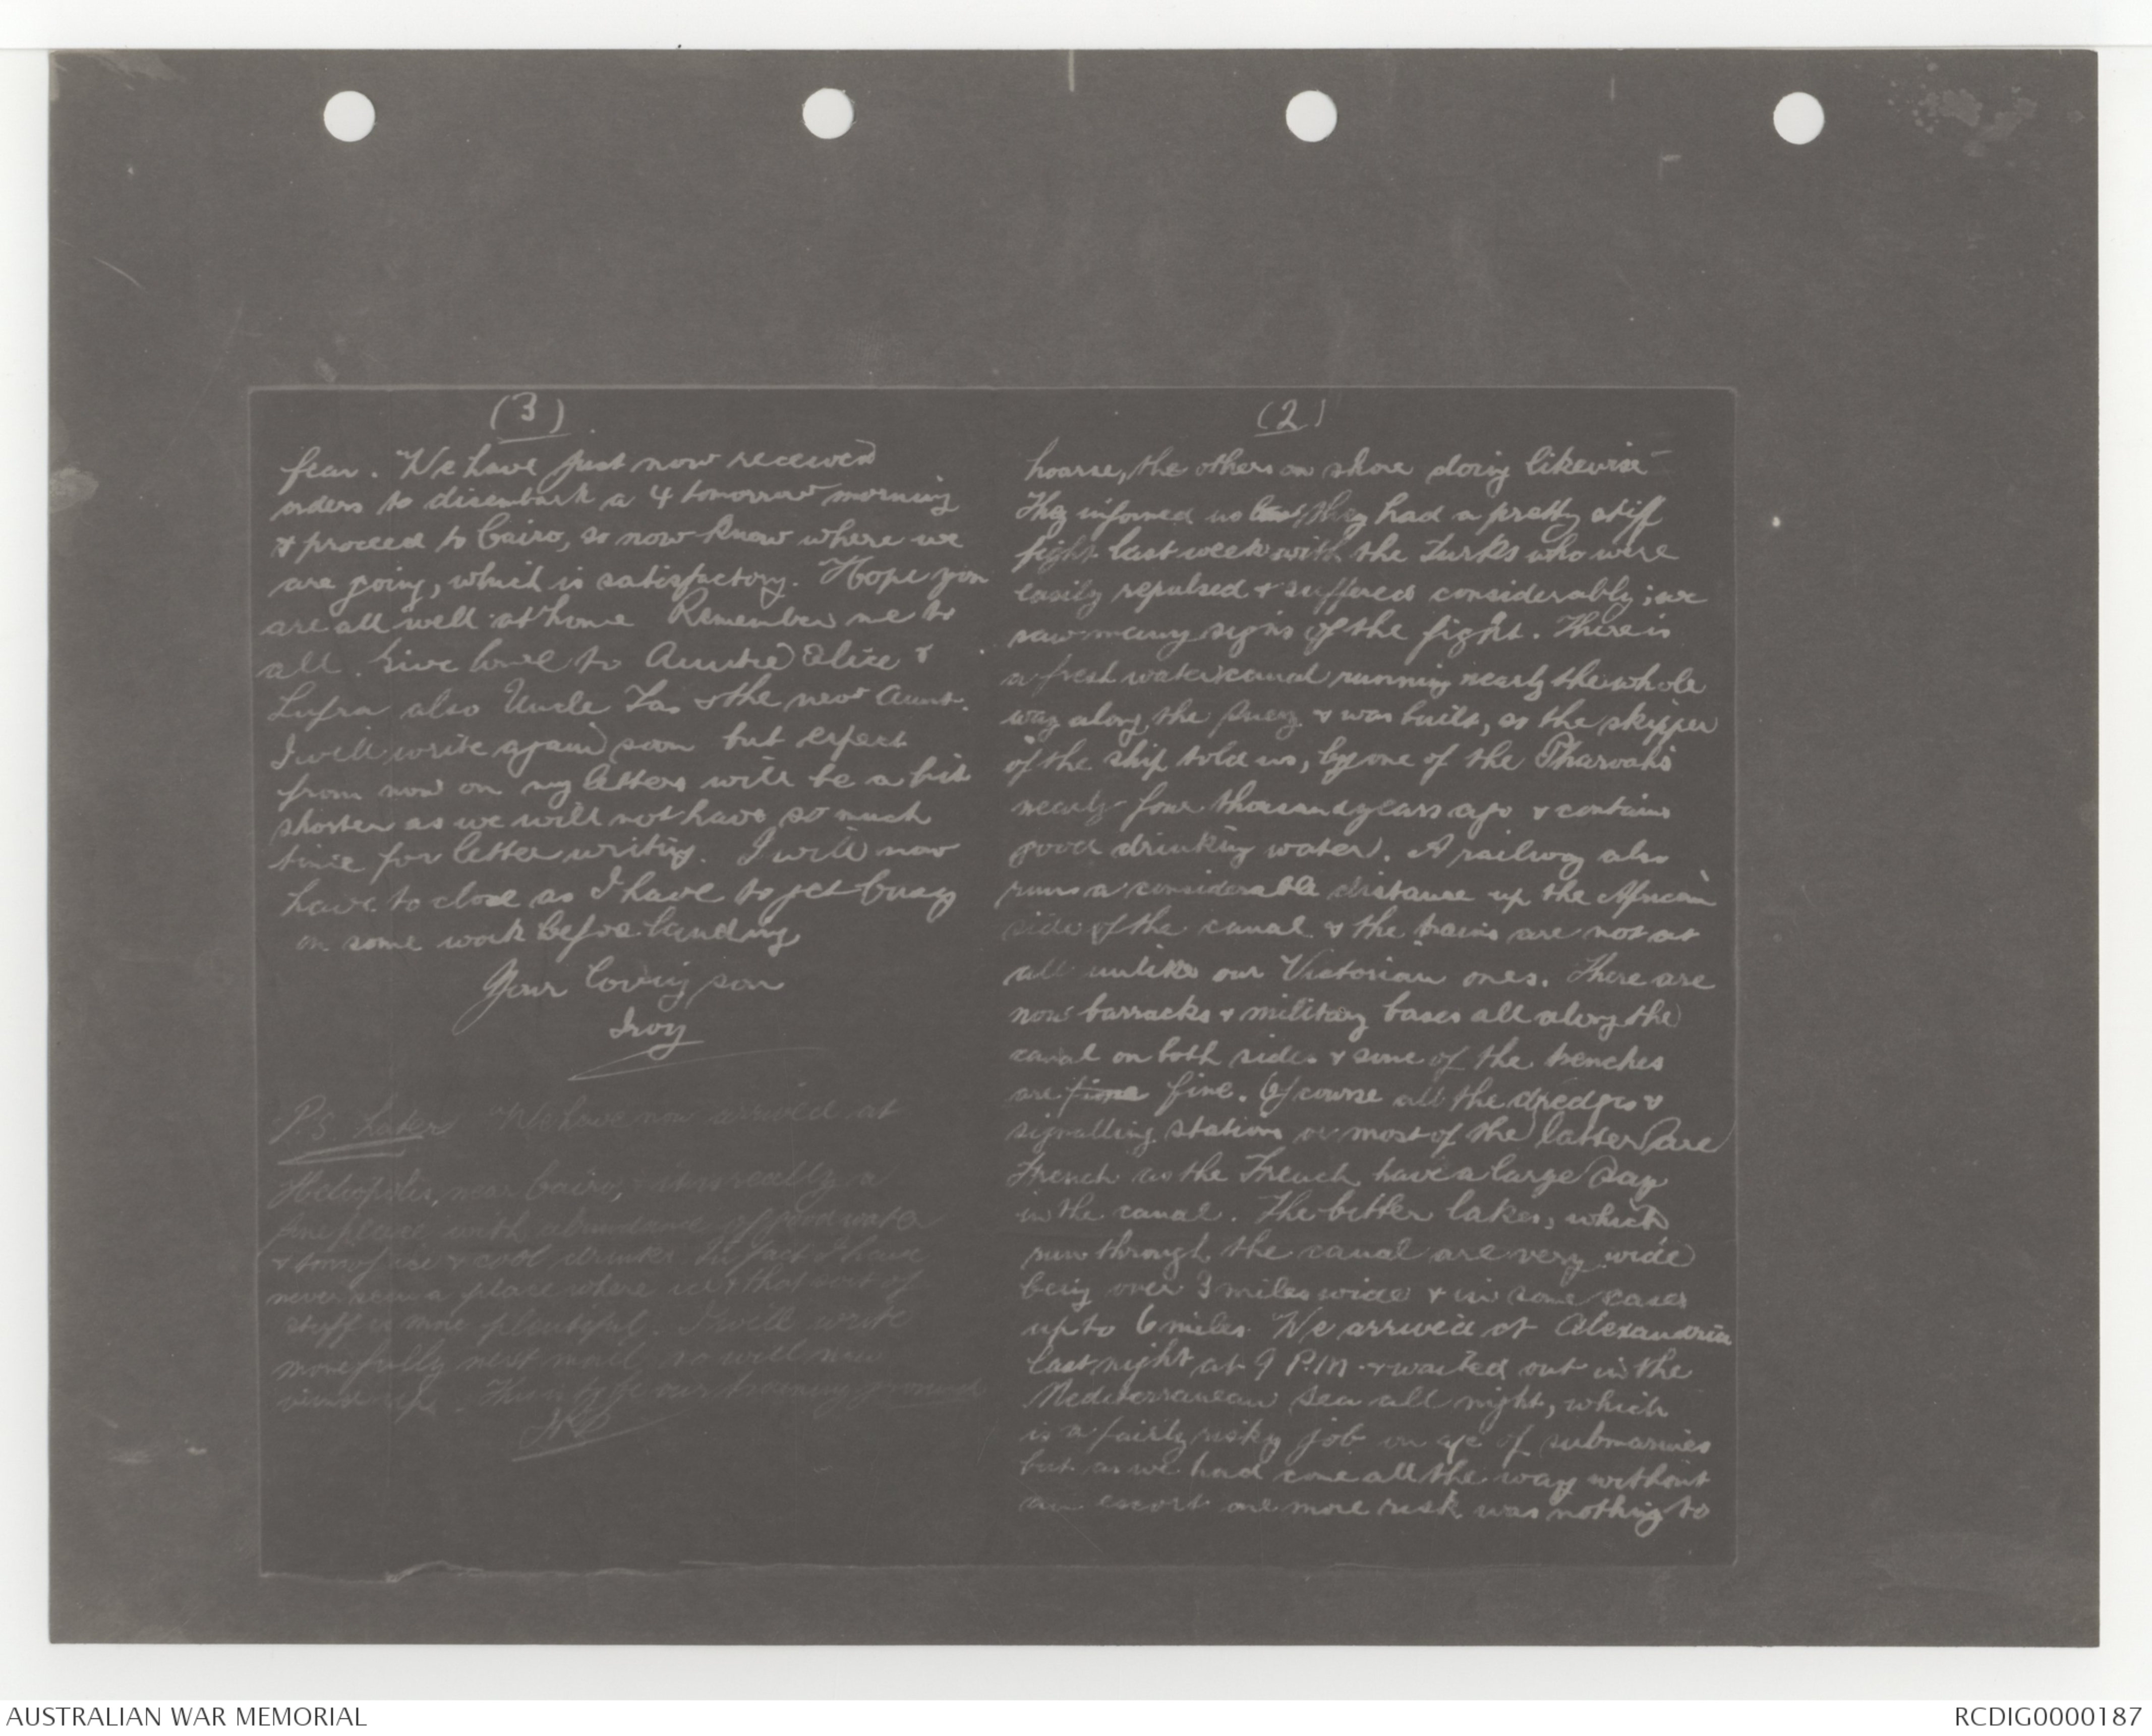 (2)
hoarse, the others on shore doing likewise
They informed us they had a pretty stiff
fight last week with the Turks who were
easily repulsed & suffered considerably; we
saw many signs of the fight. There is
a fresh water canal running nearly the whole
way along the Suez & was built, so the skipper
of the ship told us, by one of the Pharoahs
nearly four thousand years ago & contains
good drinking water. A railway also
runs a considerable distance up the African
side of the canal & the trains are not at
all unlike our Victorian ones. There are
now barracks & military bases all along the
canal on both sides & some of the trenches
are fine. Of course all the dredges &
signalling stations or most of the latter are
French as the French have a large say
in the canal. The bitter lakes, which
run through the canal are very wide
being over 3 miles wide & in some cases
up to 6 miles. We arrived at Alexandria
last night at 9 P.M. & waited out in the
Mediterranean Sea all night, which
is a fairly risky job on a/c of submarines
but as we had come all the way without
an escort one more risk was nothing to
(3)
fear. We have just now received
orders to disembark a 4 tomorrow morning
& proceed to Cairo, so now know where we
are going, which is satisfactory. Hope you
are all well at home Remember me to
all. Give love to Auntie Alice &
Lufra also Uncle Tas & the new Aunt.
I will write again soon but expect
from now on my letters will be a bit
shorter as we will not have so much
time for letter writing. I will now
have to close as I have to get busy
on some work before landing
Your loving son
P.S. Later We have now arrived at
Heliopolis, near Cairo, & it is really a
fine place with abundance of good water
& tons of ice & cool drinks. In fact I have
never seen a place where ice & that sort of
stuff is more plentiful. I will write
more fully next mail so will now
wind up. This is to be our training ground
AUSTRALIAN WAR MEMORIAL
RCDIG0000187